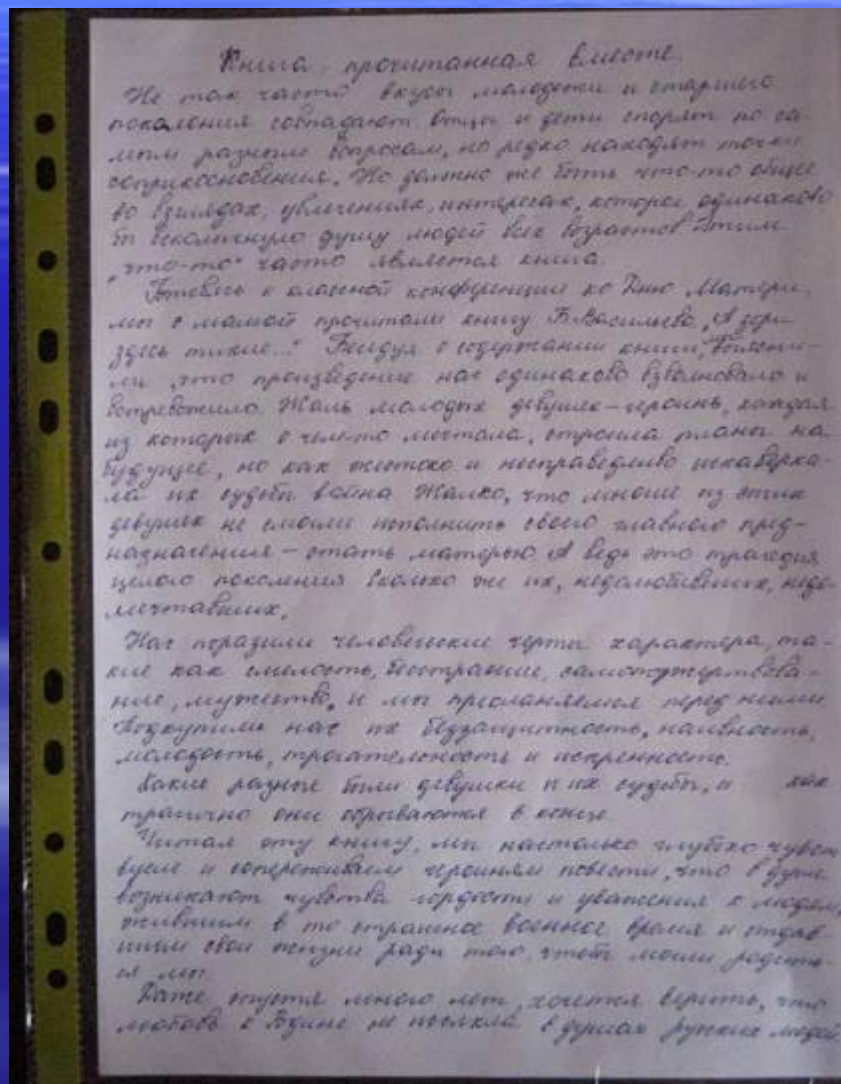 Книга, прочитанная вместе.
Не так часто вкусы молодежи и старшего
поколения совпадают. Отцы и дети спорят по са-
мым разным вопросам, но редко находят точки
соприкосновения. Но должно же быть что-то общее
во взглядах, увлечениях, интересах, которое одинаково
бы всколыхнуло душу людей всех возрастов. Этим
"что-то" часто является книга.
Готовясь к классной конференции ко Дню Матери,
мы с мамой прочитали книгу Б. Васильева "А зори
здесь тихие..." Беседуя о содержании книги, выясни-
ли, что произведение нас одинаково взволновало и
встревожило. Жаль молодых девушек-героинь, каждая
из которых о чем-то мечтала, строила планы на
будущее, но как жестоко и несправедливо исковерка-
ла их судьбы война. Жалко, что многие из этих
девушек не смогли исполнить своего главного пред-
назначения – стать матерью. А ведь это трагедия
целого поколения. Сколько же их, недолюбивших, недо-
мечтавших.
Нас поразили человеческие черты характера, та-
кие как смелость, бесстрашие, самопожертвова-
ние, мужество, и мы преклоняемся перед ними.
Подкупили нас их беззащитность, наивность,
молодость, трогательность и искренность.
Какие разные были девушки и их судьбы, и как
трагично они обрываются в конце.
Читая эту книгу, мы настолько глубоко чувст
вуем и сопереживаем героиням повести, что в душе
возникают чувства гордости и уважения к людям,
жившим в то страшное военное время и отдав-
шим свои жизни ради того, чтобы могли родить-
ся мы.
Даже спустя много лет, хочется верить, что
любовь к Родине не иссякла в душах русских людей